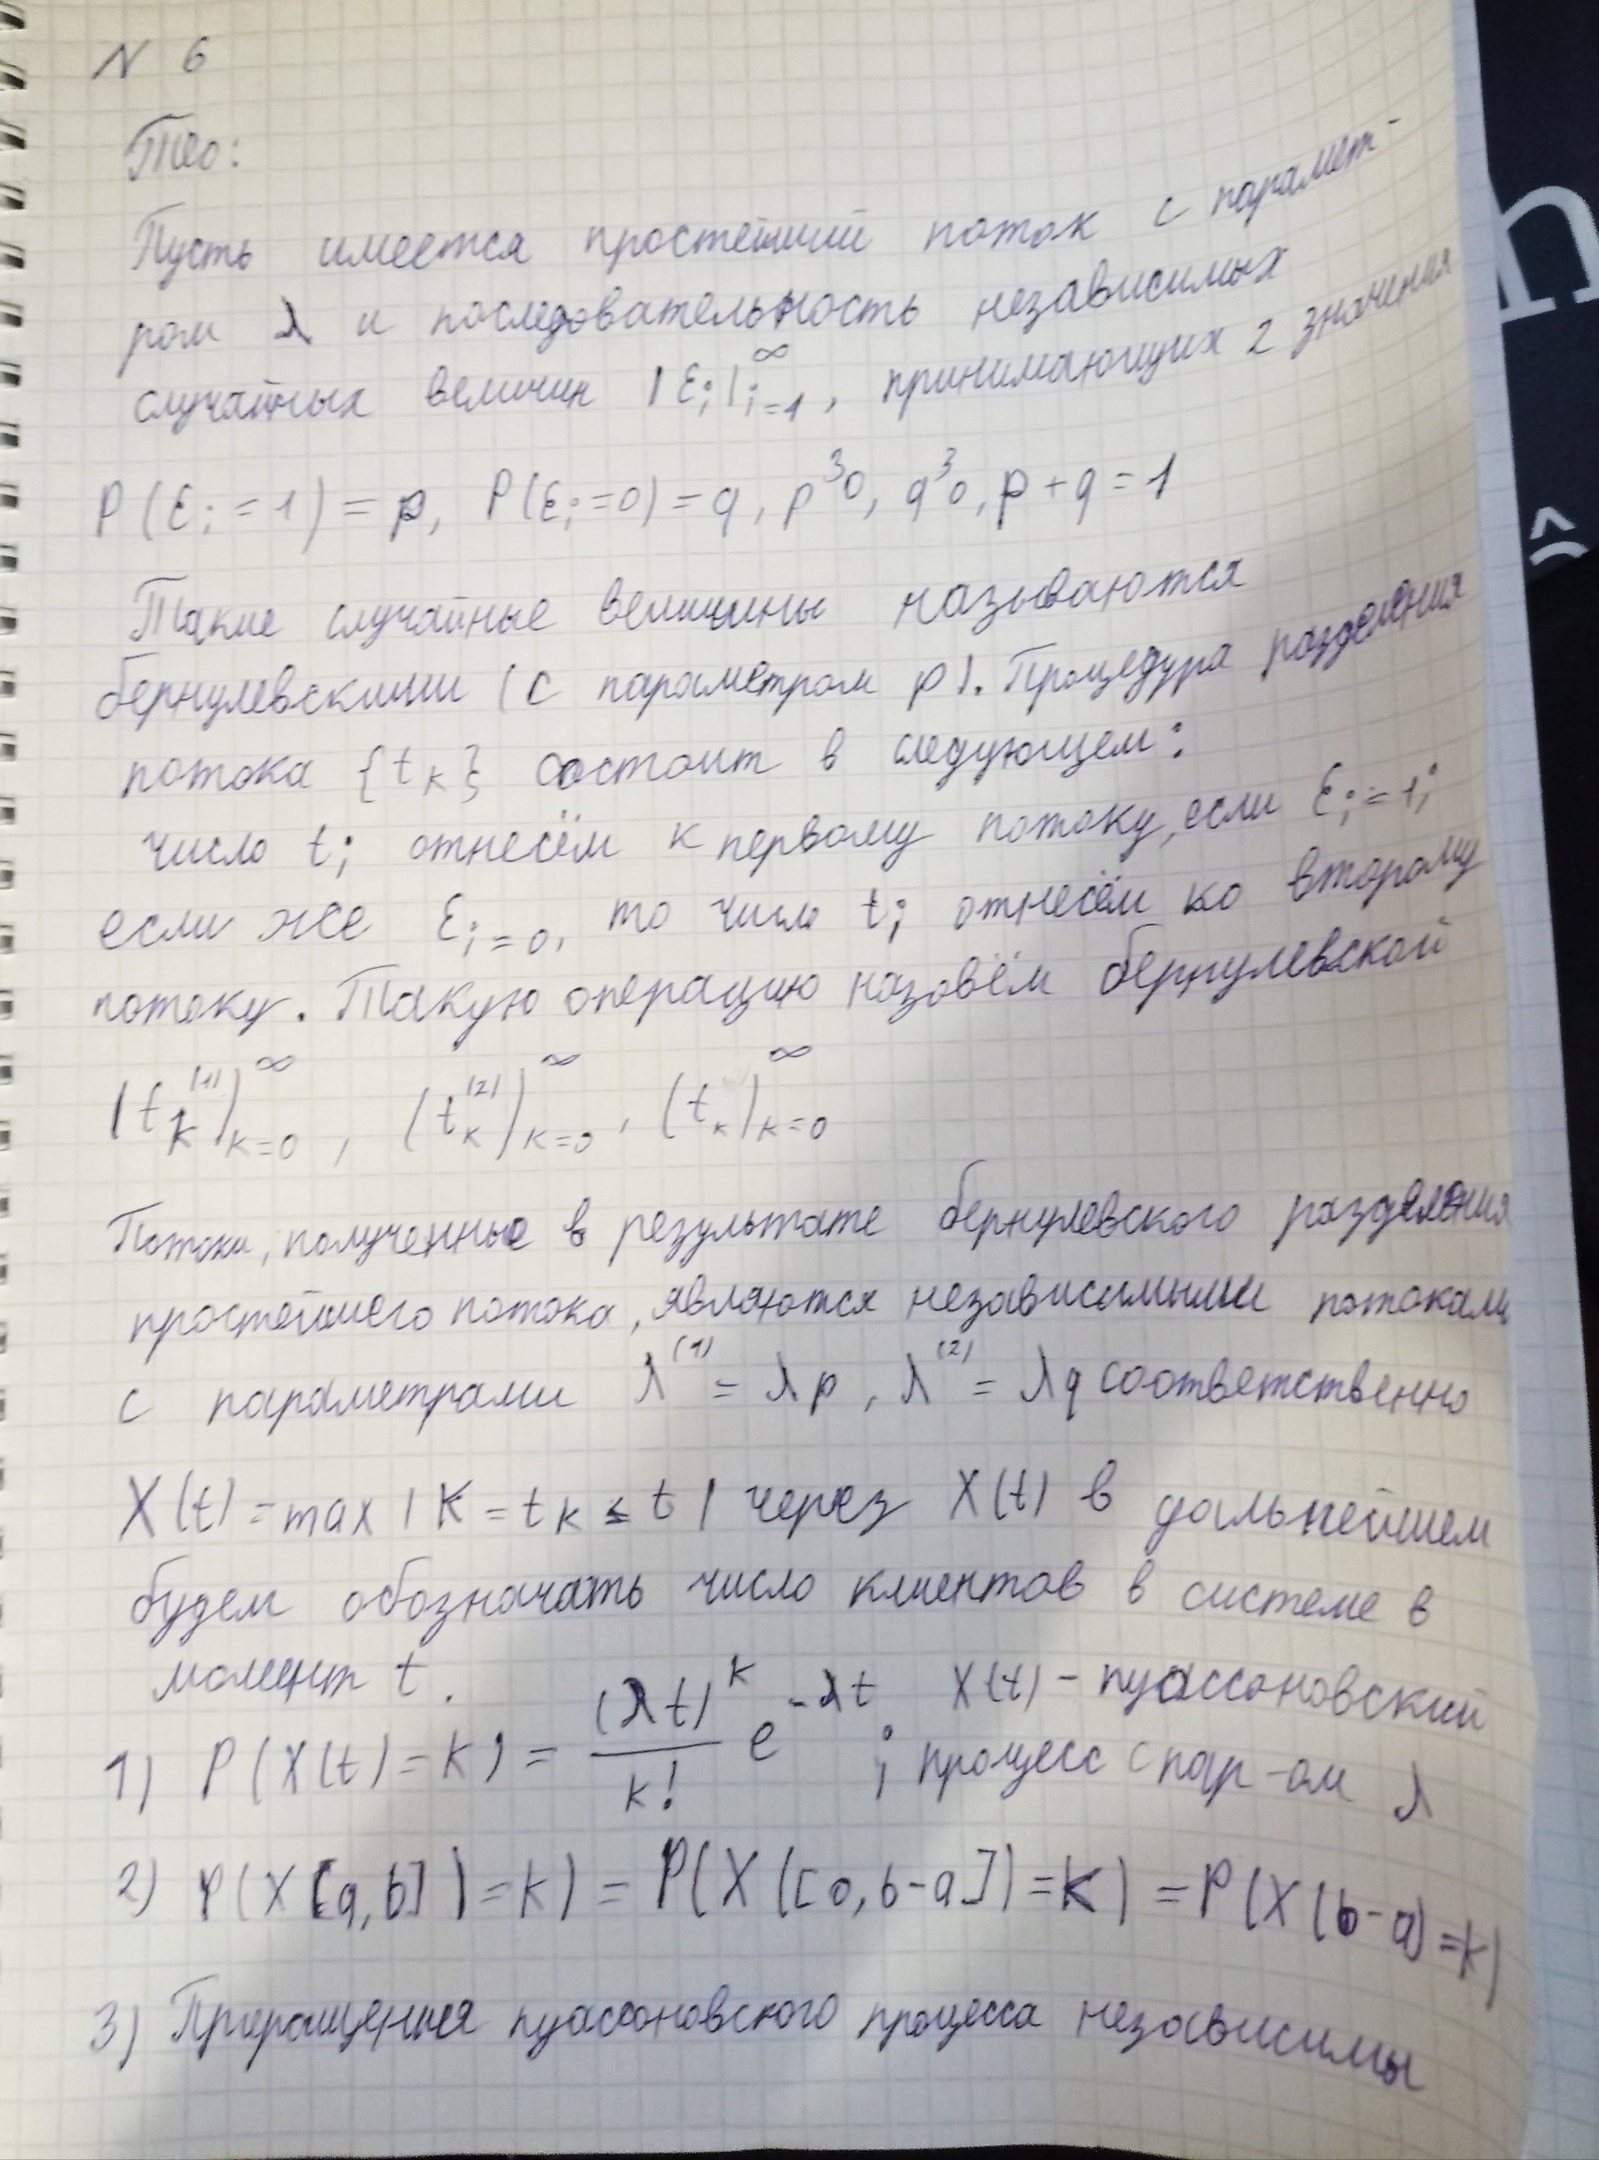 N 6
Тео:
Пусть имеется простейший поток с парамет-
ром λ и последовательность независимых
случайных величин (ε_i)_{i=1}^∞, принимающих 2 значения
P(ε_i=1)=p, P(ε_i=0)=q, p³0, q³0, p+q=1
Такие случайные величины называются
бернулевскими (с параметром p). Процедура разделения
потока {t_k} состоит в следующем:
число t_i отнесём к первому потоку, если ε_i=1;
если же ε_i=0, то число t_i отнесём ко второму
потоку. Такую операцию назовём бернулевской
(t_k^{(1)})_{k=0}^∞, (t_k^{(2)})_{k=0}^∞, (t_k)_{k=0}^∞
Потоки, полученные в результате бернулевского разделения
простейшего потока, являются независимыми потоками
с параметрами λ^{(1)}=λp, λ^{(2)}=λq соответственно
X(t)=max(K=t_k≤t) через X(t) в дальнейшем
будем обозначать число клиентов в системе в
момент t.
1) P(X(t)=k)=\frac{(λt)^k}{k!}e^{-λt}; X(t)-пуассоновский процесс с пар-ом λ
2) P(X[a,b])=k)=P(X([0,b-a])=k)=P(X(b-a)=k)
3) Приращения пуассоновского процесса независимы